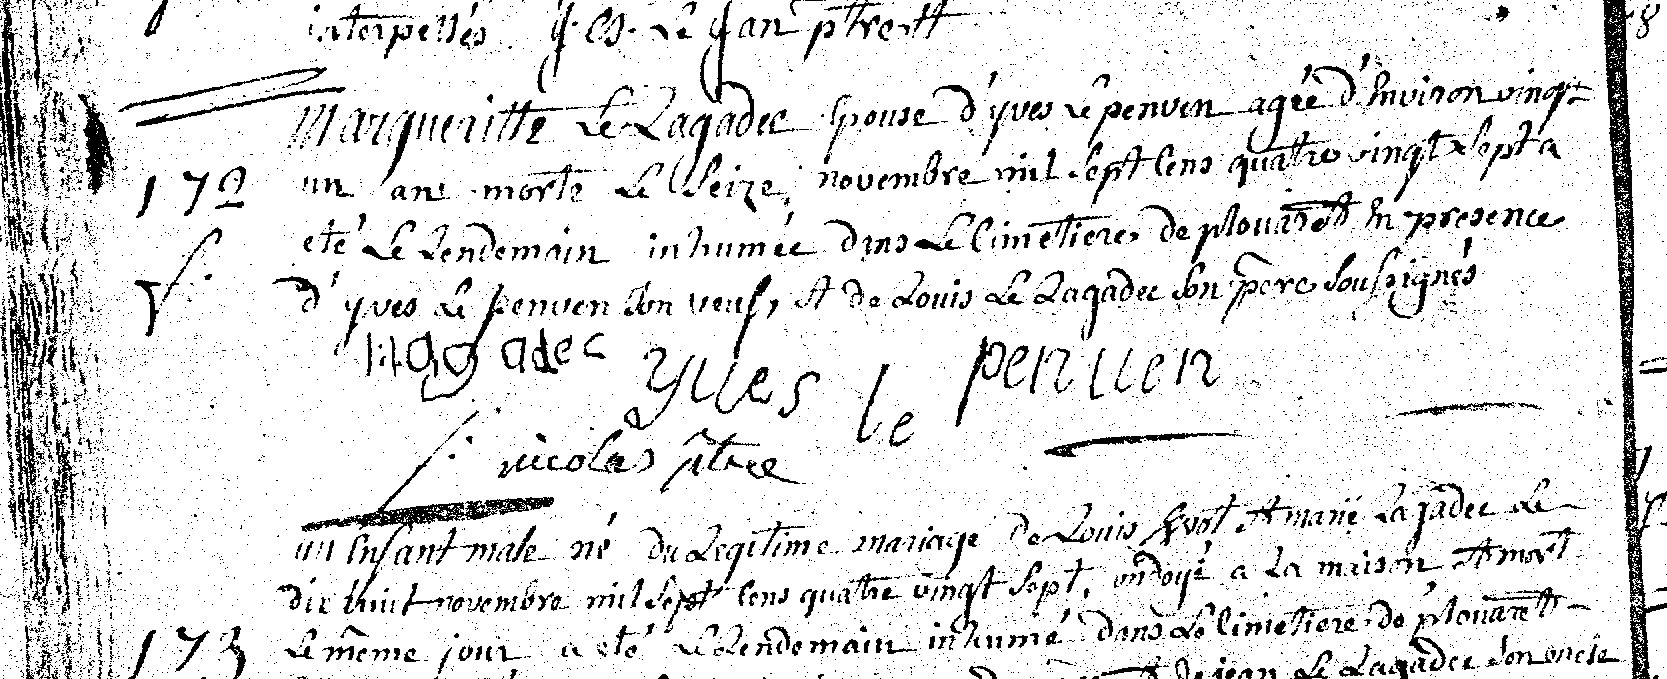 interpellés
Margueritte Le Lagadec Epouse d'yves Le penven agée d'Environ vingt
172 un ans morte Le Seize novembre mil Sept Cens quatre vingt Sept a
eté Le Lendemain inhumée dans Le Cimetiere de plouaret En presence
d'yves Le penven Son veuf, et de Louis Le Lagadec Son pere Soussignés
lagadec yves le penven
nicolas ptre
un Enfant male né du Legitime mariage de Louis et marie Lagadec Le
dix huit novembre mil Sept Cens quatre vingt Sept, ondoyé a La maison et mort
173 Le même jour a eté Le Lendemain inhumé dans Le Cimetiere de plouaret
de jean Le Lagadec Son oncle